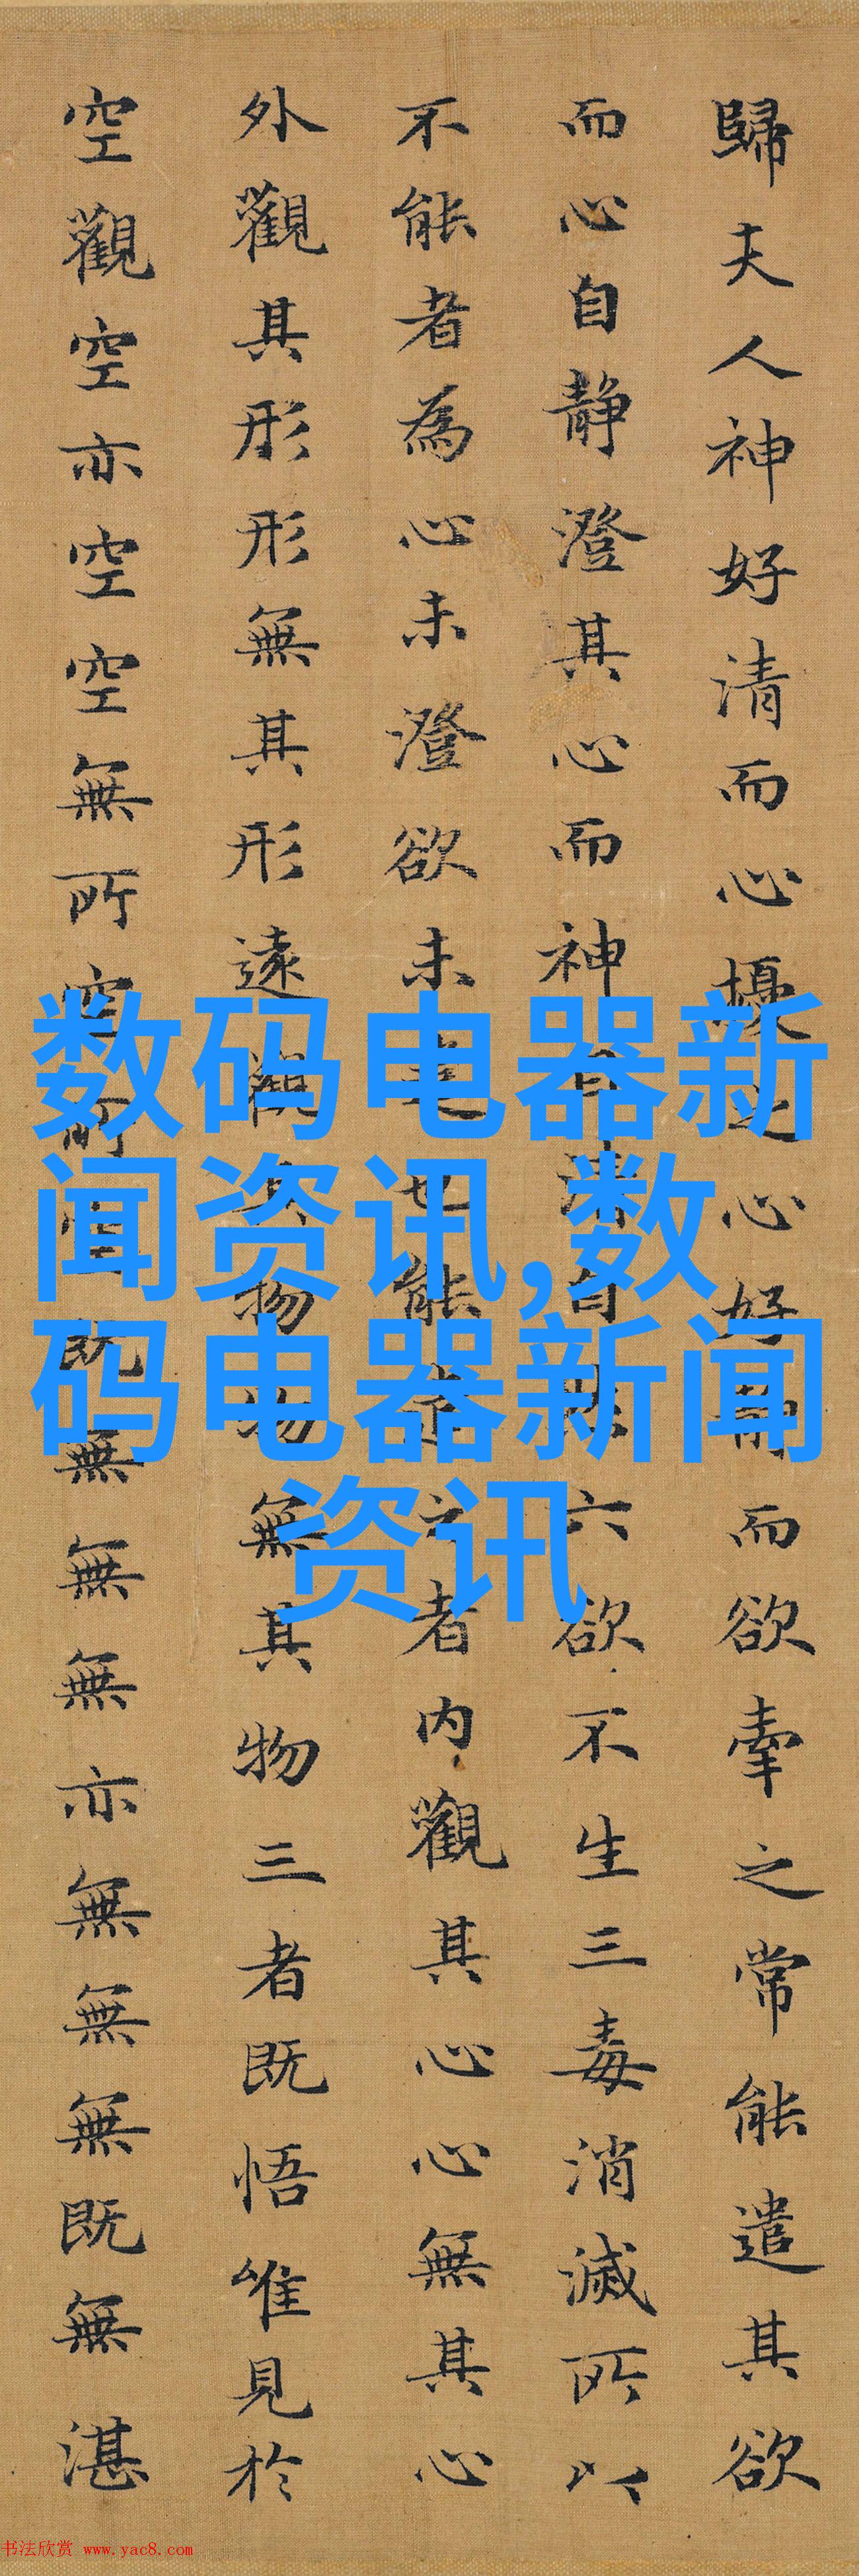 歸夫人神好清而心擾之心好靜而欲牽之常能遣其欲
而心自靜澄其心而神自清自然六欲不生三毒消滅所以
不能者為心未澄欲未遣也能遣之者內觀其心心無其心
外觀其形形無其形遠觀其物物無其物三者既悟唯見於
空觀空亦空空無所空所空既無無無亦無無無既無湛
数码电器新
闻资讯,数
码电器新闻
资讯
书法欣赏 www.yac8.com